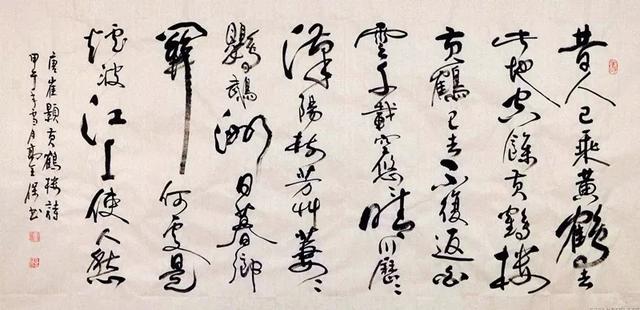 昔人已乘黄鶴去
此地空餘黄鶴樓
黄鶴已去不復返白
雲千載空悠〻晴川歷〻
漢陽樹芳艸萋〻
鸚鵡洲日暮鄉
關何處是
煙波江上使人愁
唐崔顥黄鶴樓詩
甲午年雪月書